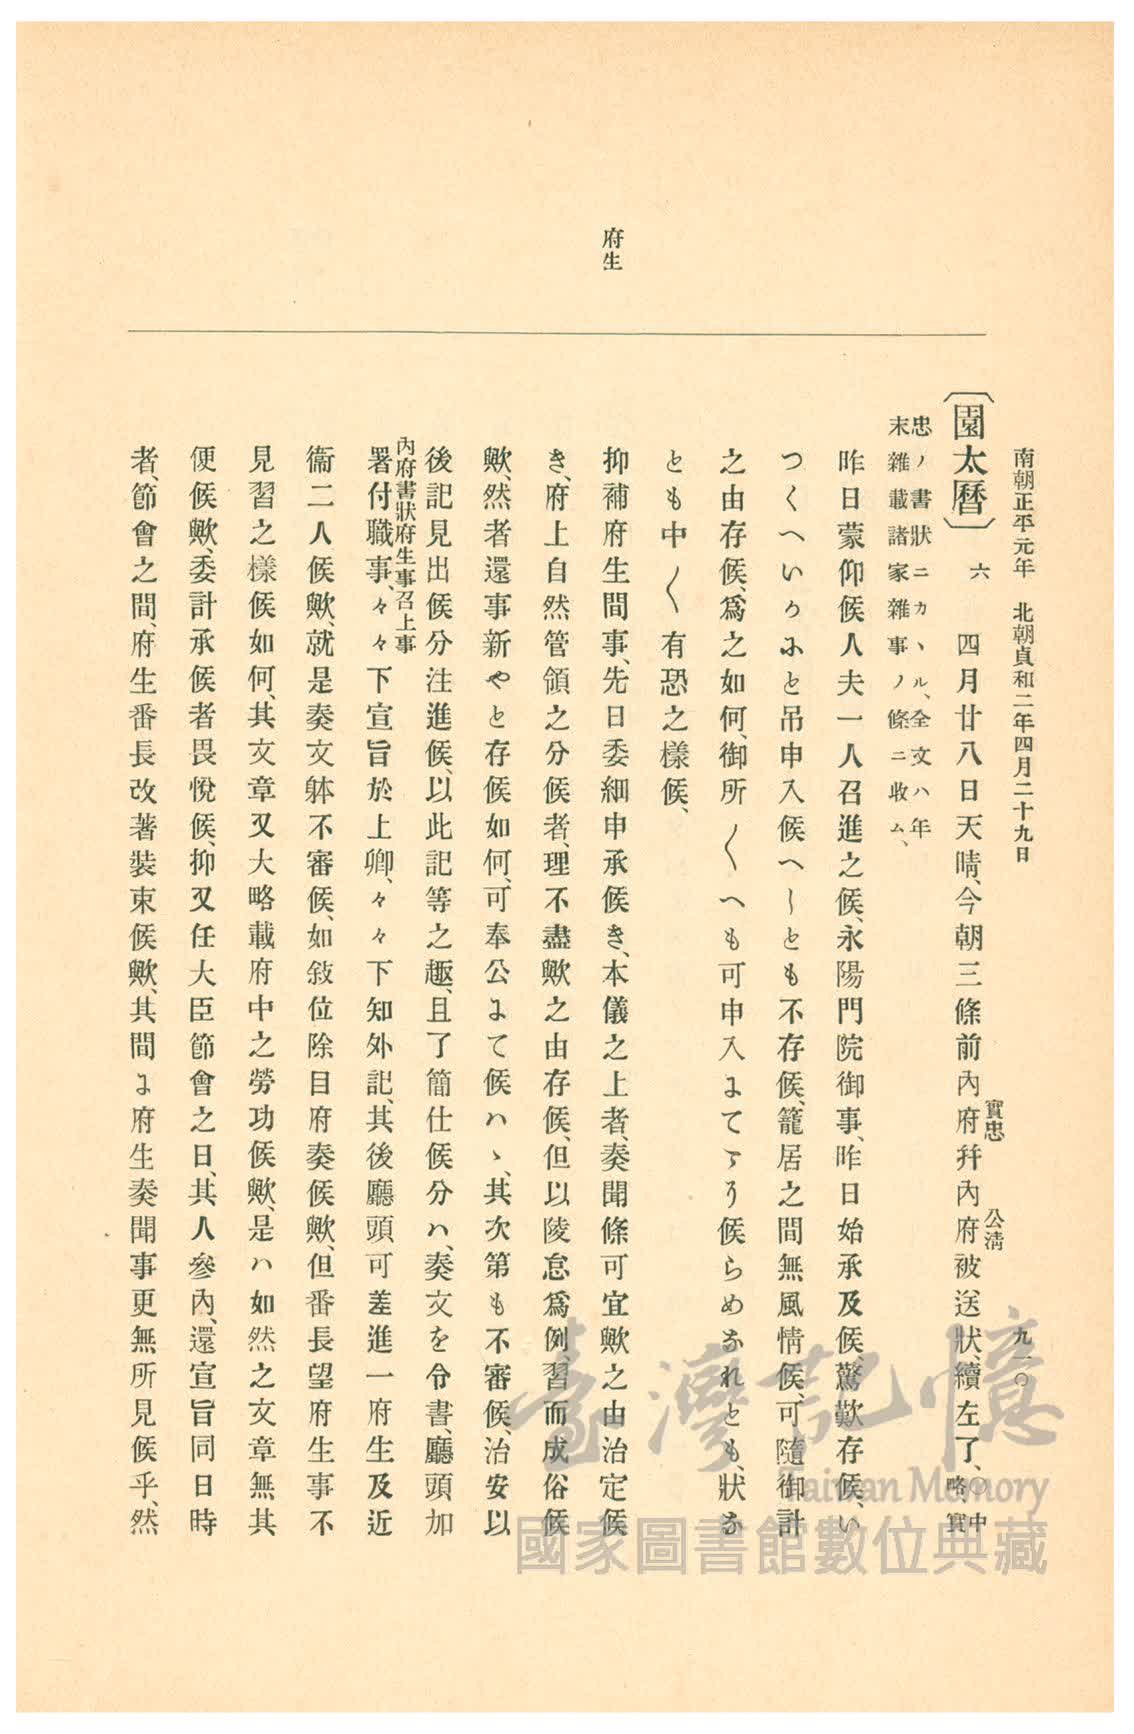 南朝正平元年 北朝貞和二年四月二十九日 九一〇
〔園太曆〕 六 四月廿八日天晴、今朝三條前內府實忠幷內府公淸被送狀、續左了、〇中略、實
忠ノ書狀ニカヽル、全文ハ年
末雜載諸家雜事ノ條ニ收ム、
昨日蒙仰候人夫一人召進之候、永陽門院御事、昨日始承及候、驚歎存候、い
つくへいかにと吊申入候へしとも不存候、籠居之間無風情候、可隨御計
之由存候、爲之如何、御所〱へも可申入にてかう候らめなれとも、狀な
とも中〱有恐之樣候、
府生
抑補府生間事、先日委細申承候き、本儀之上者、奏聞條可宜歟之由治定候
き、府上自然管領之分候者、理不盡歟之由存候、但以陵怠爲例、習而成俗候
歟、然者還事新やと存候如何、可奉公にて候ハヽ、其次第も不審候、治安以
後記見出候分注進候、以此記等之趣、且了簡仕候分ハ、奏文を令書、廳頭加
內府書狀府生事召上事
署付職事、々々下宣旨於上卿、々々下知外記、其後廳頭可差進一府生及近
衞二人候歟、就是奏文躰不審候、如敍位除目府奏候歟、但番長望府生事不
見習之樣候如何、其文章又大略載府中之勞功候歟、是ハ如然之文章無其
便候歟、委計承候者畏悅候、抑又任大臣節會之日、其人參內、還宣旨同日時
者、節會之間、府生番長改著裝束候歟、其間に府生奏聞事更無所見候乎、然
臺灣記憶
Taiwan Memory
國家圖書館數位典藏